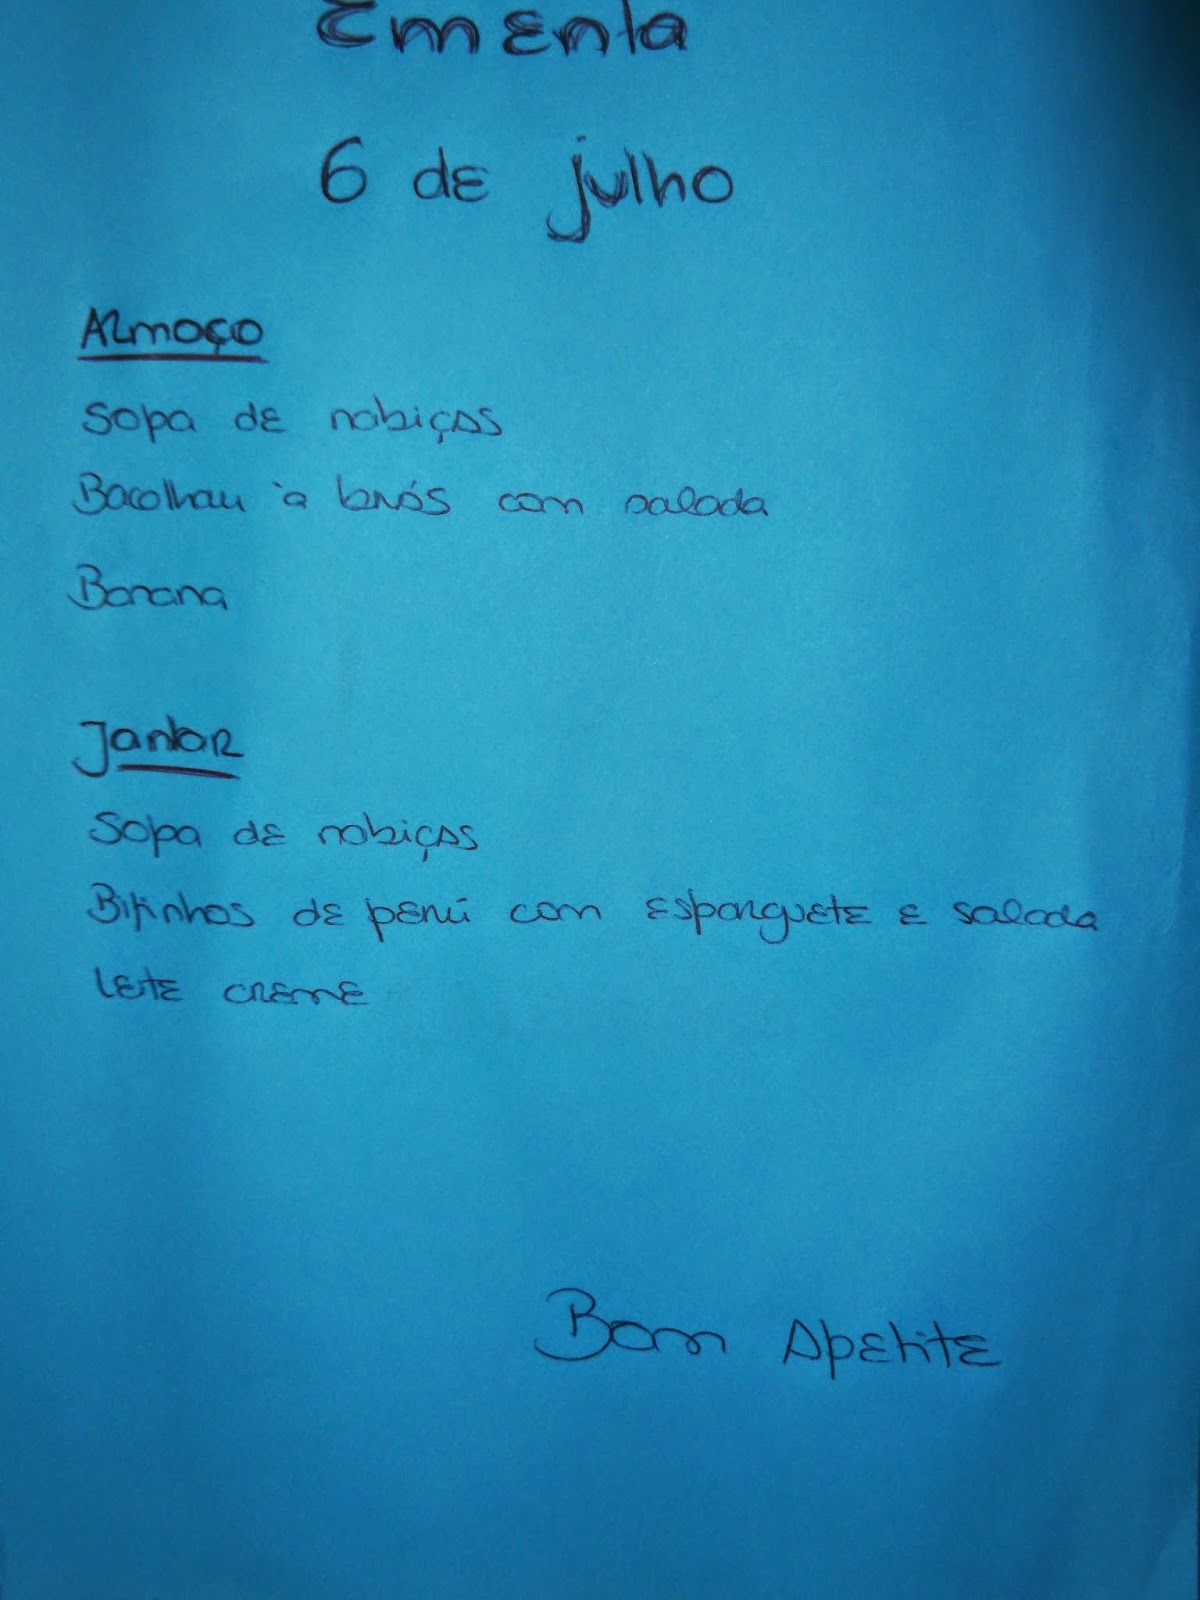 Ementa
6 de julho
Almoço
Sopa de nabiças
Bacalhau à brás com salada
Banana
Jantar
Sopa de nabiças
Bifinhos de perú com esparguete e salada
Leite creme
Bom Apetite